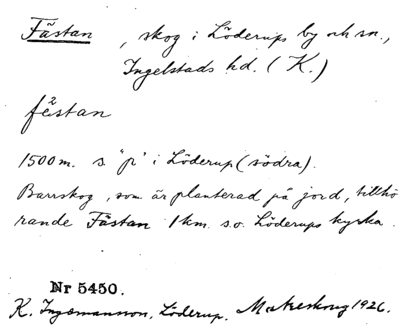 Fästan, skog i Löderups by och sn.,
Ingelstads hd. (K.)
fästan
1500 m. s. "p" i Löderup (södra).
Barrskog, som är planterad på jord, tillhö
rande Fästan 1 km. s.o. Löderups kyrka.
Nr 5450.
K. Ingemansson, Löderup. 1926.